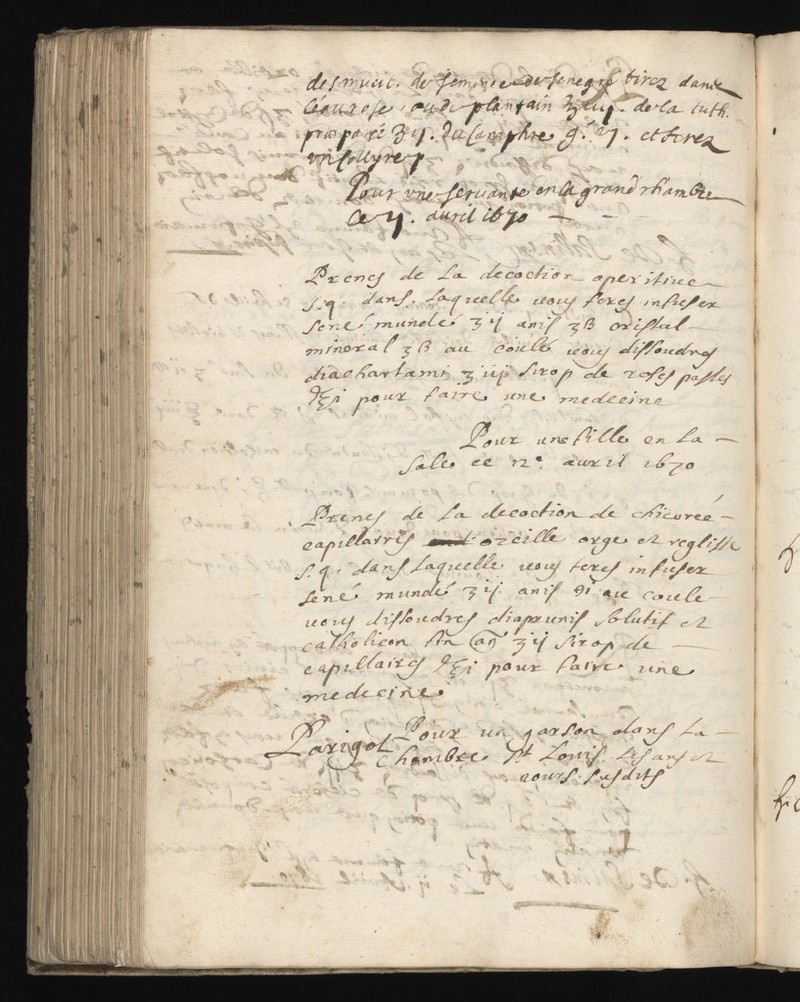 des mucic. de semence de fenegré tirez dans
l'eau rose ou de plantain ℥iiij. de la tuth.
præparé ʒ ij. du camphre g.
et ferez
un collyre
Pour une servante en la grand chambre
ce
avril 1670
Prenes de la decoction aperitive
s.q. dans laquelle vous feres infuser
sené mundé ʒ ij anis ʒß cristal
mineral ʒß au coulé vous dissoudres
diachartami ʒ iij sirop de roses passes
℥i pour faire une medecine
Pour une fille en la
sale ce 12e. avril 1670
Prenes de la decoction de chicoreé
capillaires ozeille orge et reglisse
s.q. dans laquelle vous feres infuser
sené mundé ʒ ij anis ℈i au coule
vous dissoudres diaprunis solutif et
catholicon fin an ʒ ij sirop de
capillaires ℥i pour faire une
medecine
Parigot Pour un garson dans la
chambre St Louis les ans et
jours susdits